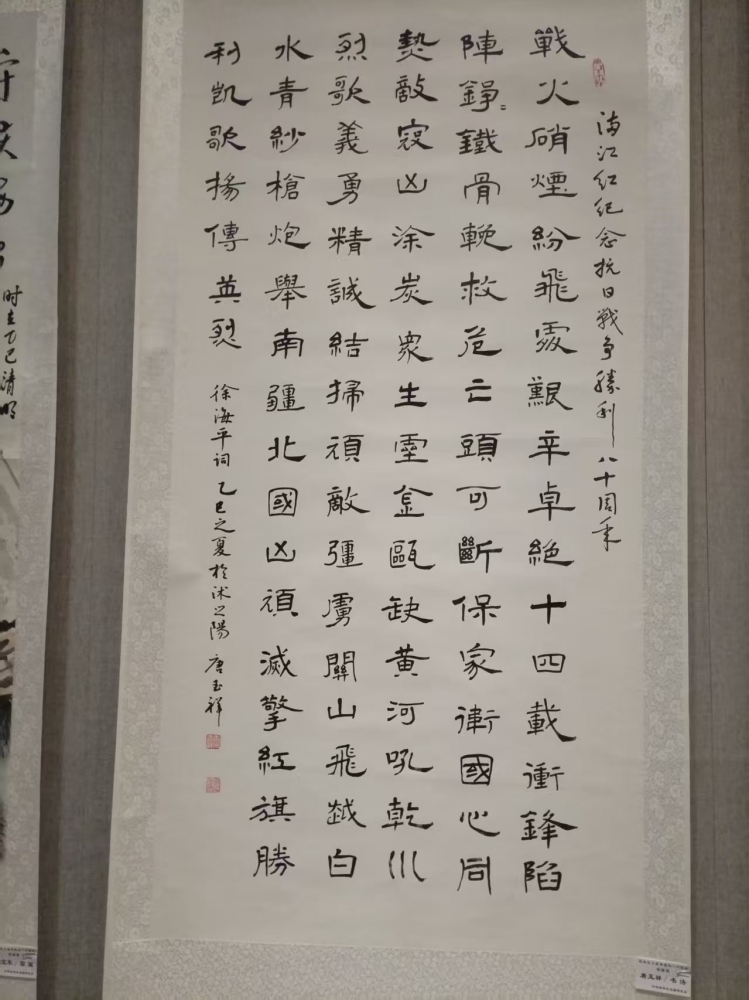 满江红纪念抗日戰争勝利八十周年
戰火硝煙紛飛處艱辛卓絕十四載衝鋒陷
陣錚〻鐵骨輓救危亡頭可斷保家衛國心同
熱敵寇凶涂炭眾生靈金甌缺黄河吼乾川
烈歌義勇精誠結掃頑敵彊虜關山飛越白
水青紗槍炮舉南疆北國凶頑滅擎紅旗勝
利凱歌揚傳英烈 徐海平词 乙巳之夏於沭之陽 唐玉祥
时在乙巳清明
唐玉祥/书法